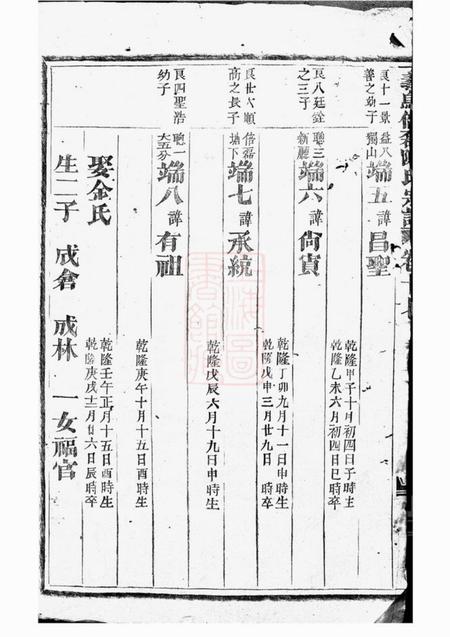 良十一景
善之幼子
益八
獨山
端五
諱昌聖
乾隆甲子十月初四日子時生
乾隆乙未六月初四日巳時卒
良八廷銓
之三子
聰三
新廳
端六
諱尙賓
乾隆丁卯九月十一日申時生
乾隆戊申三月廿九日
良廿六順
高之長子
倍磊
塘下
端七
諱承統
乾隆戊辰六月十九日申時生
良四聖浩
幼子
聰一
大五分
端八
諱有祖
乾隆庚午十月十五日酉時生
娶金氏
乾隆壬午正月十五日酉時生
乾隆庚戌十二月廿六日辰時卒
生二子 成倉 成林 一女福官